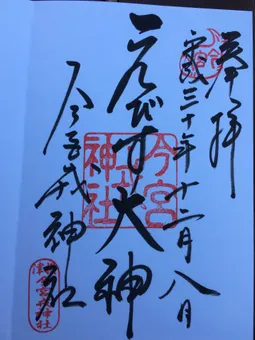 奉拝
平成三十年十二月八日
ゑびす大神
今宮戎神社
今宮戎神社